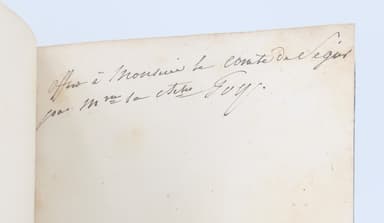 offert à Monsieur le comte de Ségur
par Mme la Ctsse